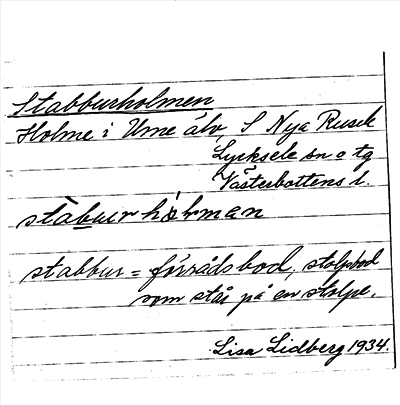 Stabburholmen
Holme i Ume älv, S Nya Rusele
Lycksele sn o tg
Västerbottens l.
stàburhòłman
stabbur = förrådsbod, stolpbod
som står på en stolpe.
Lisa Lidberg 1934.